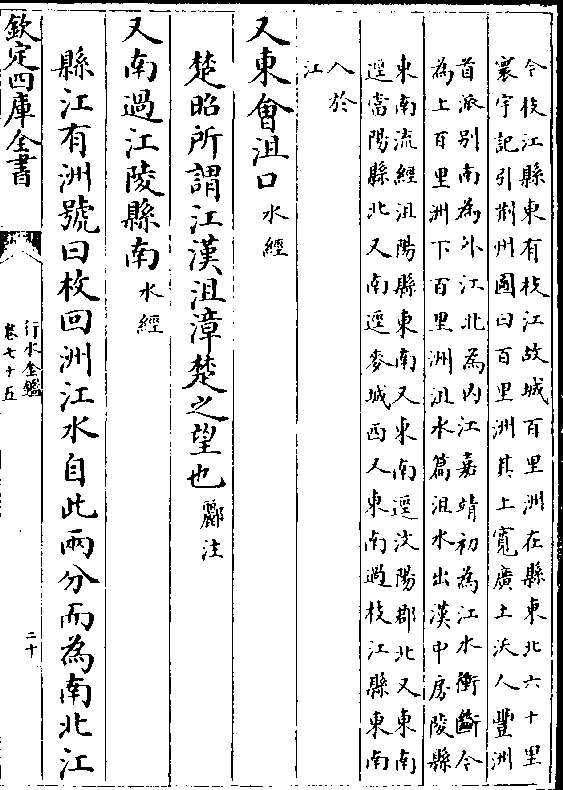 今枝江縣東有枝江故城百里洲在縣東北六十里
寰宇記引荆州圖曰百里洲其上寛廣土沃人豐洲
首派别南為外江北為内江嘉靖初為江水衝斷今
為上百里洲下百里洲沮水篇沮水出漢中房陵縣
東南流經沮陽縣東南又東南逕汶陽郡北又東南
逕當陽縣北又南逕麥城西又東南過枝江縣東南
入於
江
又東會沮口水經
楚昭所謂江漢沮漳楚之望也酈注
又南過江陵縣南水經
縣江有洲號曰枚回洲江水自此兩分而為南北江
欽定四庫全書
行水金鑑
卷七十五
二十